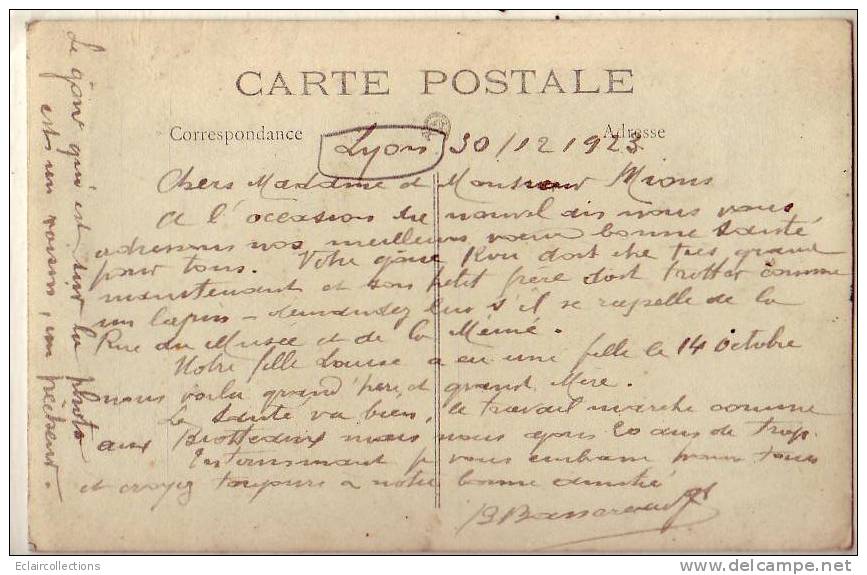 CARTE POSTALE
Correspondance
Adresse
Lyon 30/12 1923
Chers Madame et Monsieur Mions
A l'occasion du nouvel an nous vous
adressons nos meilleurs voeux bonne santé
pour tous. Votre gône doit être très grand
maintenant et son petit frère doit trotter comme
un lapin - demandez leur s'il se rapelle de la
Rue du Musée et de la Mémé.
Notre fille Louise a eu une fille le 14 octobre
nous voila grand'père et grand Mère.
La santé va bien, le travail marche comme
aux Brotteaux mais nous avons 20 ans de trop.
En terminant je vous embrasse pour tous
et croyez toujours a notre bonne amitié
Le gône qui est sur la photo
est un voisin, un pêcheur.
Eclaircollections
www.delcampe.net